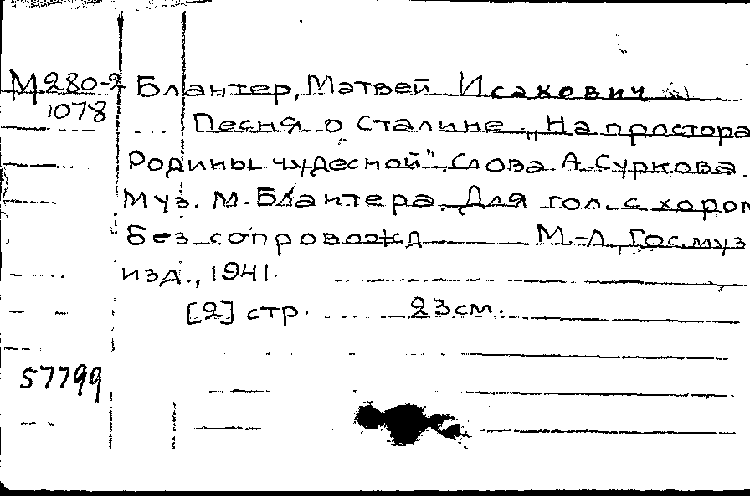 М280-2 Блантер, Матвей Исакович
1078
Песня о Сталине. „На простора
Родины чудесной". Слова А. Суркова.
Муз. М. Блантера. Для гол. с хором
без сопровожд М.-Л., Гос.муз
изд., 1941.
[2] стр. 23см.
57799